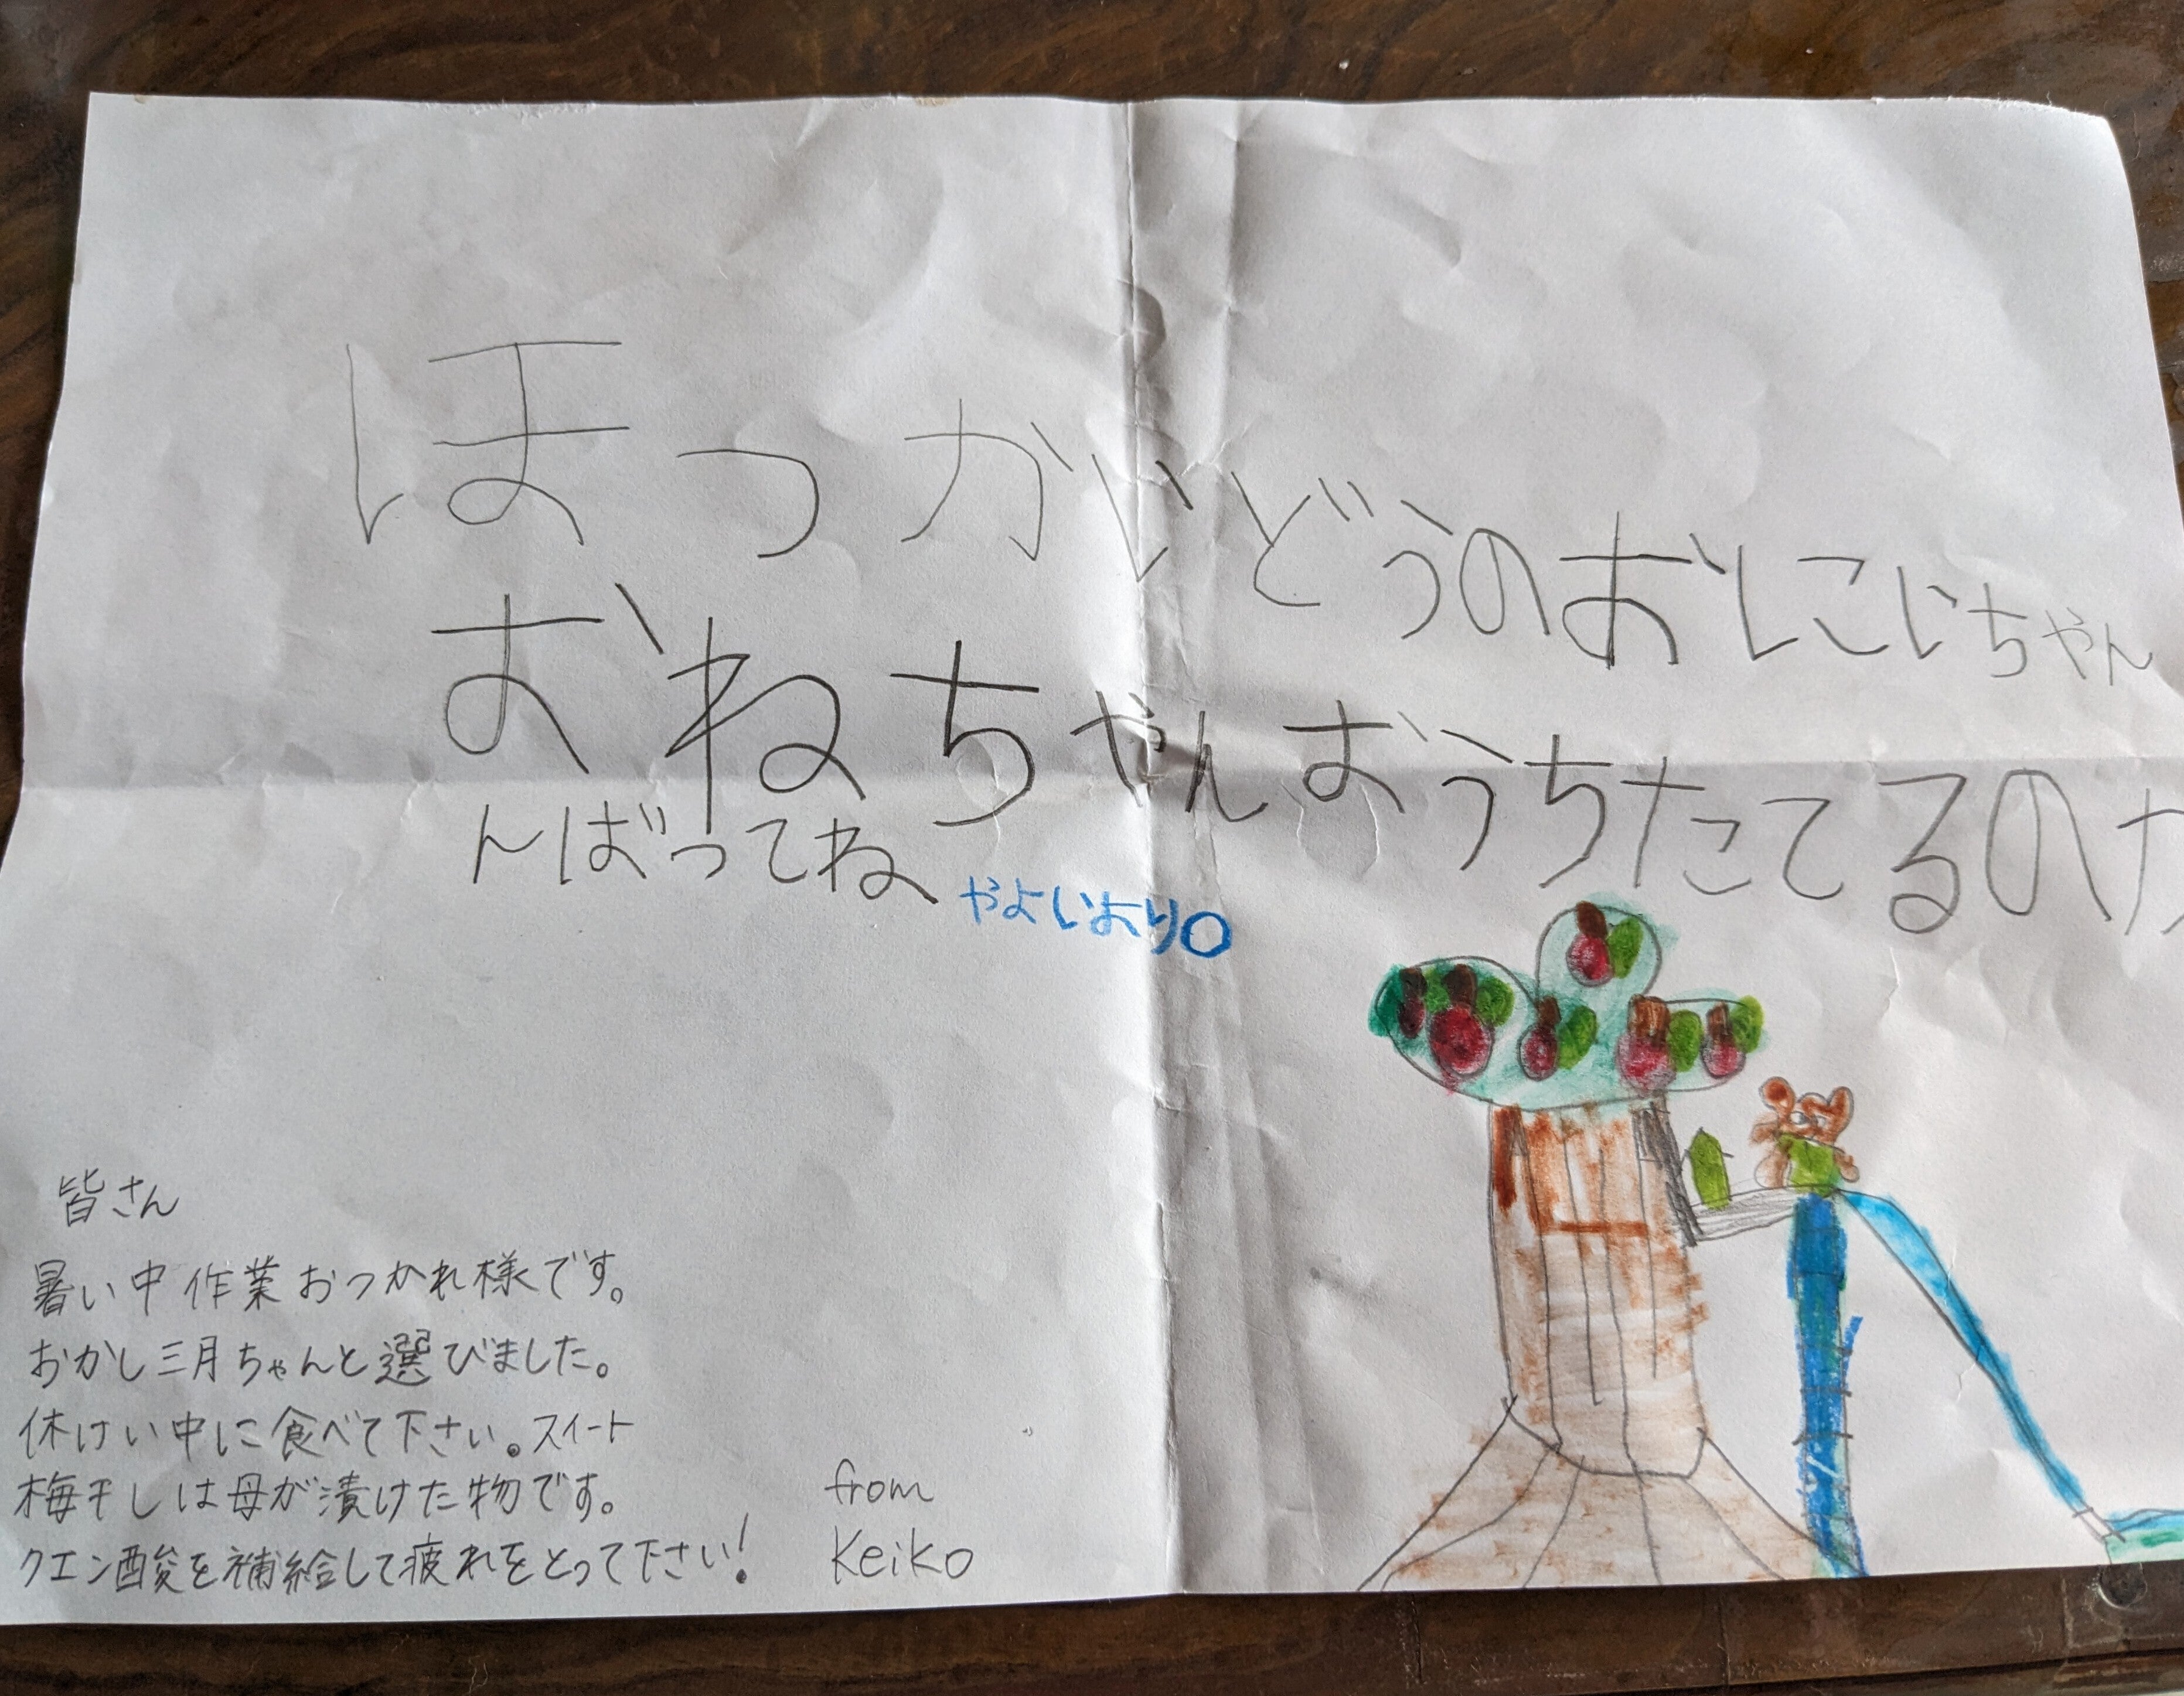 ほっかいどうのおにいちゃん
おねちゃんおうちたてるのが
んばってね
やよいより○
皆さん
暑い中作業おつかれ様です。
おかし三月ちゃんと選びました。
休けい中に食べて下さい。スイート
梅干しは母が漬けた物です。
クエン酸を補給して疲れをとって下さい!
from
Keiko